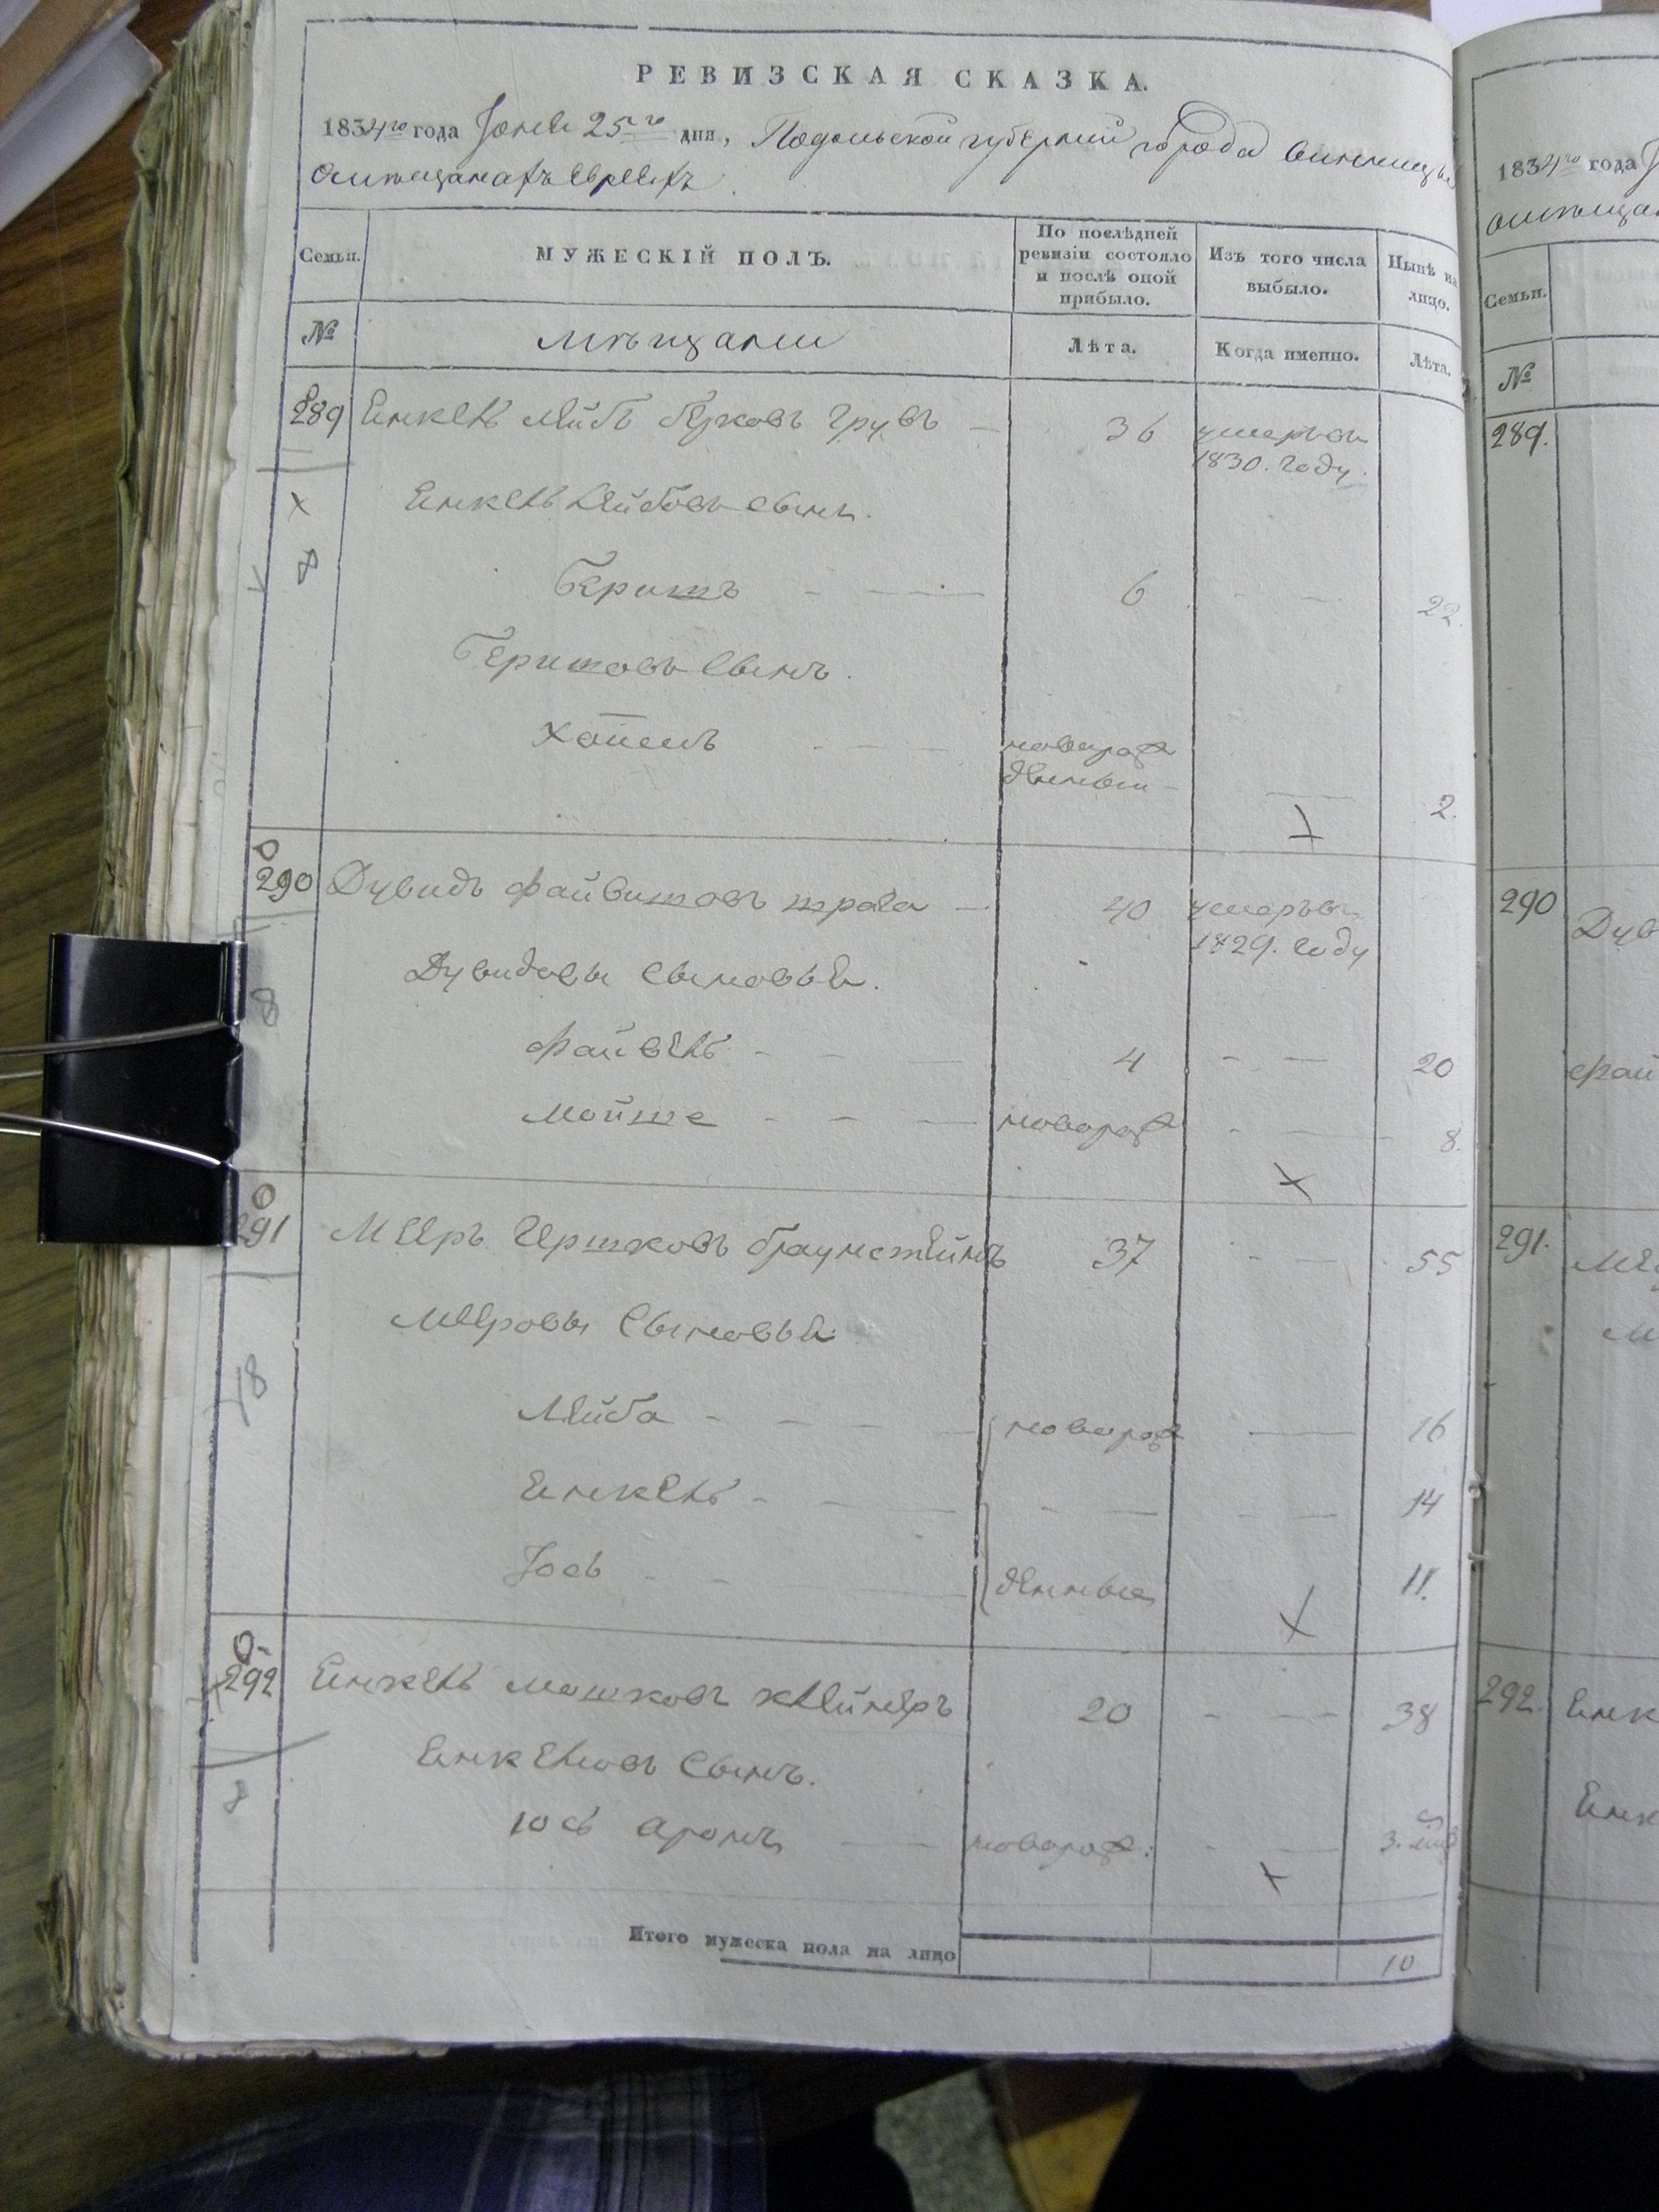 РЕВИЗСКАЯ СКАЗКА.
1834го года Июня 25го дня, Подольской губерний города Винницы
О мещанахъ евреяхъ
Семьи.
МУЖЕСКІЙ ПОЛЪ.
По послѣдней ревизіи состояло и послѣ оной прибыло.
Изъ того числа выбыло.
Нынѣ на лицо.
№
мѣщане
Лѣта.
Когда именно.
Лѣта.
289 Енкель Лейбъ Берковъ 36 умеръ въ
1830. году.
Енкель Лейбовъ сынъ.
Беришъ 6 22.
Беришовъ сынъ.
новорож
денный 2.
290 Дувидъ Файвишовъ 40 умеръ въ
1829. году
Дувидовы сыновья.
Файвель 4 20
Мойше новорож 8.
291 Мееръ Гершковъ Браунстейнъ 37 55
Мееровы сыновья
Лейба новорож 16
Енкель 14
Іось денные 11.
292 Енкель Мошковъ Клейнеръ 20 38
Енкелювъ сынъ.
Юсь Аронъ новорож: 3.
Итого мужеска пола на лицо 10
1834го года
О мѣща
Семьи.
№
289.
290 Дув
Фай
291. Ме
М
292. Енк
Енк